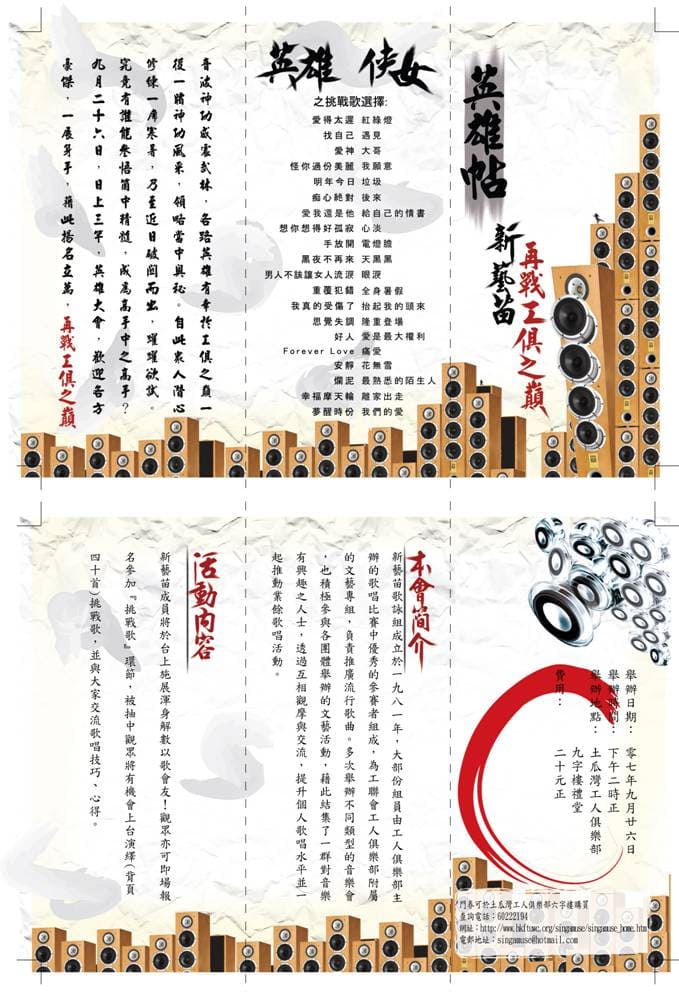 英雄帖
新藝笛
再戰工俱之巔
英雄 俠女
之挑戰歌選擇:
愛得太遲 紅綠燈
找自己 遇見
愛神 大哥
怪你過份美麗 我願意
明年今日 垃圾
痴心絕對 後來
愛我還是他 給自己的情書
想你想得好孤寂 心淡
手放開 電燈膽
黑夜不再來 天黑黑
男人不該讓女人流淚 眼淚
重覆犯錯 全身暑假
我真的受傷了 抬起我的頭來
思覺失調 隆重登場
好人 愛是最大權利
Forever Love 痛愛
安靜 花無雪
爛泥 最熟悉的陌生人
幸福摩天輪 離家出走
夢醒時份 我們的愛
音波神功威震武林，各路英雄有幸於工俱之巔一
後一睹神功風采，領略當中奧秘。自此眾人潛心
修練一席寒暑，乃至近日破關而出，躍躍欲試。
究竟有誰能參悟箇中精髓，成為高手中之高手？
九月二十六日，日上三竿，英雄大會，歡迎各方
豪傑，一展身手，藉此揚名立萬，再戰工俱之巔
舉辦日期： 零七年九月廿六日
舉辦時間： 下午二時正
舉辦地點： 土瓜灣工人俱樂部
九字樓禮堂
費用： 二十元正
門券可於土瓜灣工人俱樂部六字樓購買
查詢電話：60222194
網址：http://www.hkftumc.org/singamuse/singamuse_home.htm
電郵地址：singamuse@hotmail.com
本會簡介
新藝笛歌詠組成立於一九八一年，大部份組員由工人俱樂部主
辦的歌唱比賽中優秀的參賽者組成，為工聯會工人俱樂部附屬
的文藝專組，負責推廣流行歌曲。多次舉辦不同類型的音樂會
，也積極參與各團體舉辦的文藝活動，藉此結集了一群對音樂
有興趣之人士，透過互相觀摩與交流，提升個人歌唱水平並一
起推動業餘歌唱活動。
活動內容
新藝笛成員將於台上施展渾身解數以歌會友！觀眾亦可即場報
名參加『挑戰歌』環節，被抽中觀眾將有機會上台演繹(背頁
四十首)挑戰歌，並與大家交流歌唱技巧、心得。